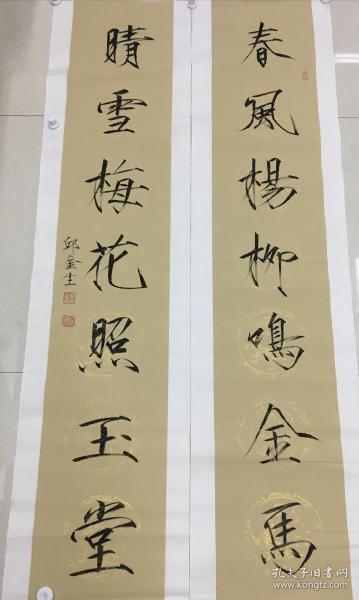 春風楊柳鳴金馬
晴雪梅花照玉堂
邱金生
孔夫子旧书网
www.kongfz.com